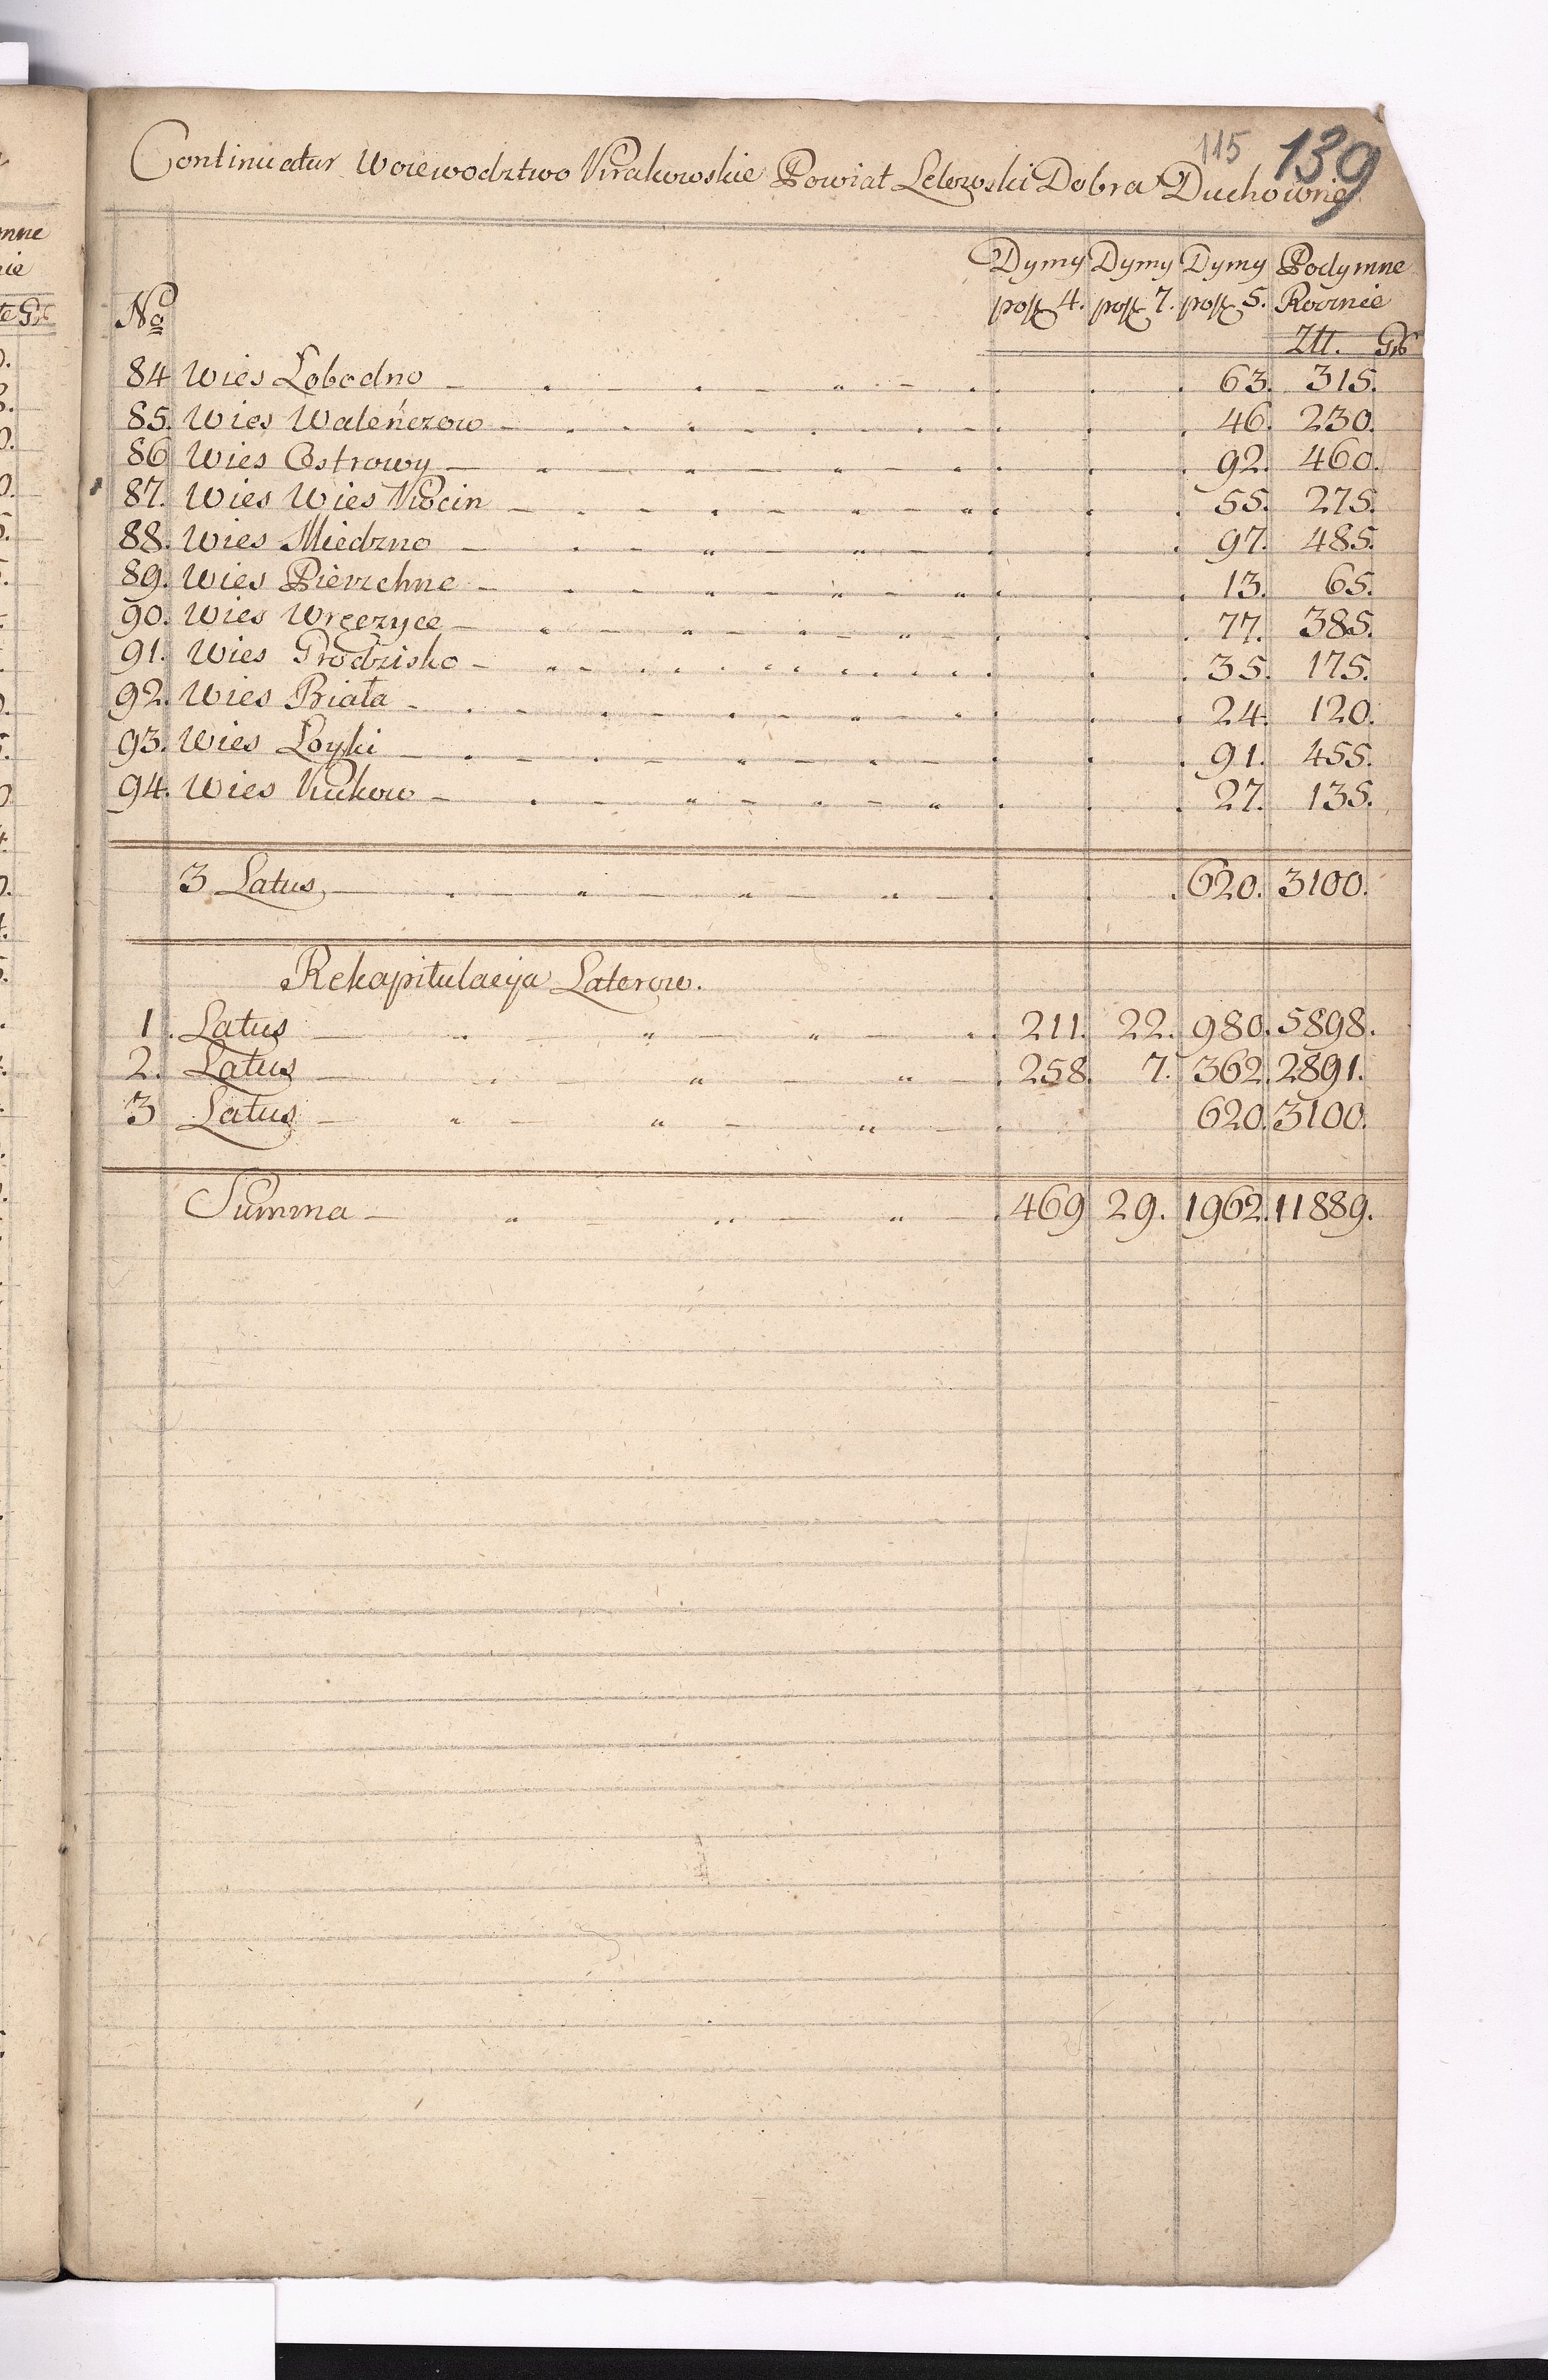 115 139
Continuatur Woiewodztwo Krakowskie Powiat Lelowski Dobra Duchowne
Dymy Dymy Dymy Podymne
No po zł 4. po zł 7. po zł 5. Rocznie
Złł. Gr
84 Wies Łobodno 63. 315.
85. Wies Waleńczow 46. 230.
86 Wies Ostrowy 92. 460.
87. Wies Wies Kocin 55. 275.
88. Wies Miedzno 97. 485.
89. Wies Pierzchne 13. 65.
90. Wies Wręczyce 77. 385.
91. Wies Grodzisko 35. 175.
92. Wies Biała 24. 120.
93. Wies Łoyki 91. 455.
94. Wies Kukow 27. 135.
3 Latus 620. 3100.
Rekapitulacyja Laterow.
1. Latus 211. 22. 980. 5898.
2. Latus 258. 7. 362. 2891.
3 Latus 620. 3100.
Summa 469 29. 1962. 11889.